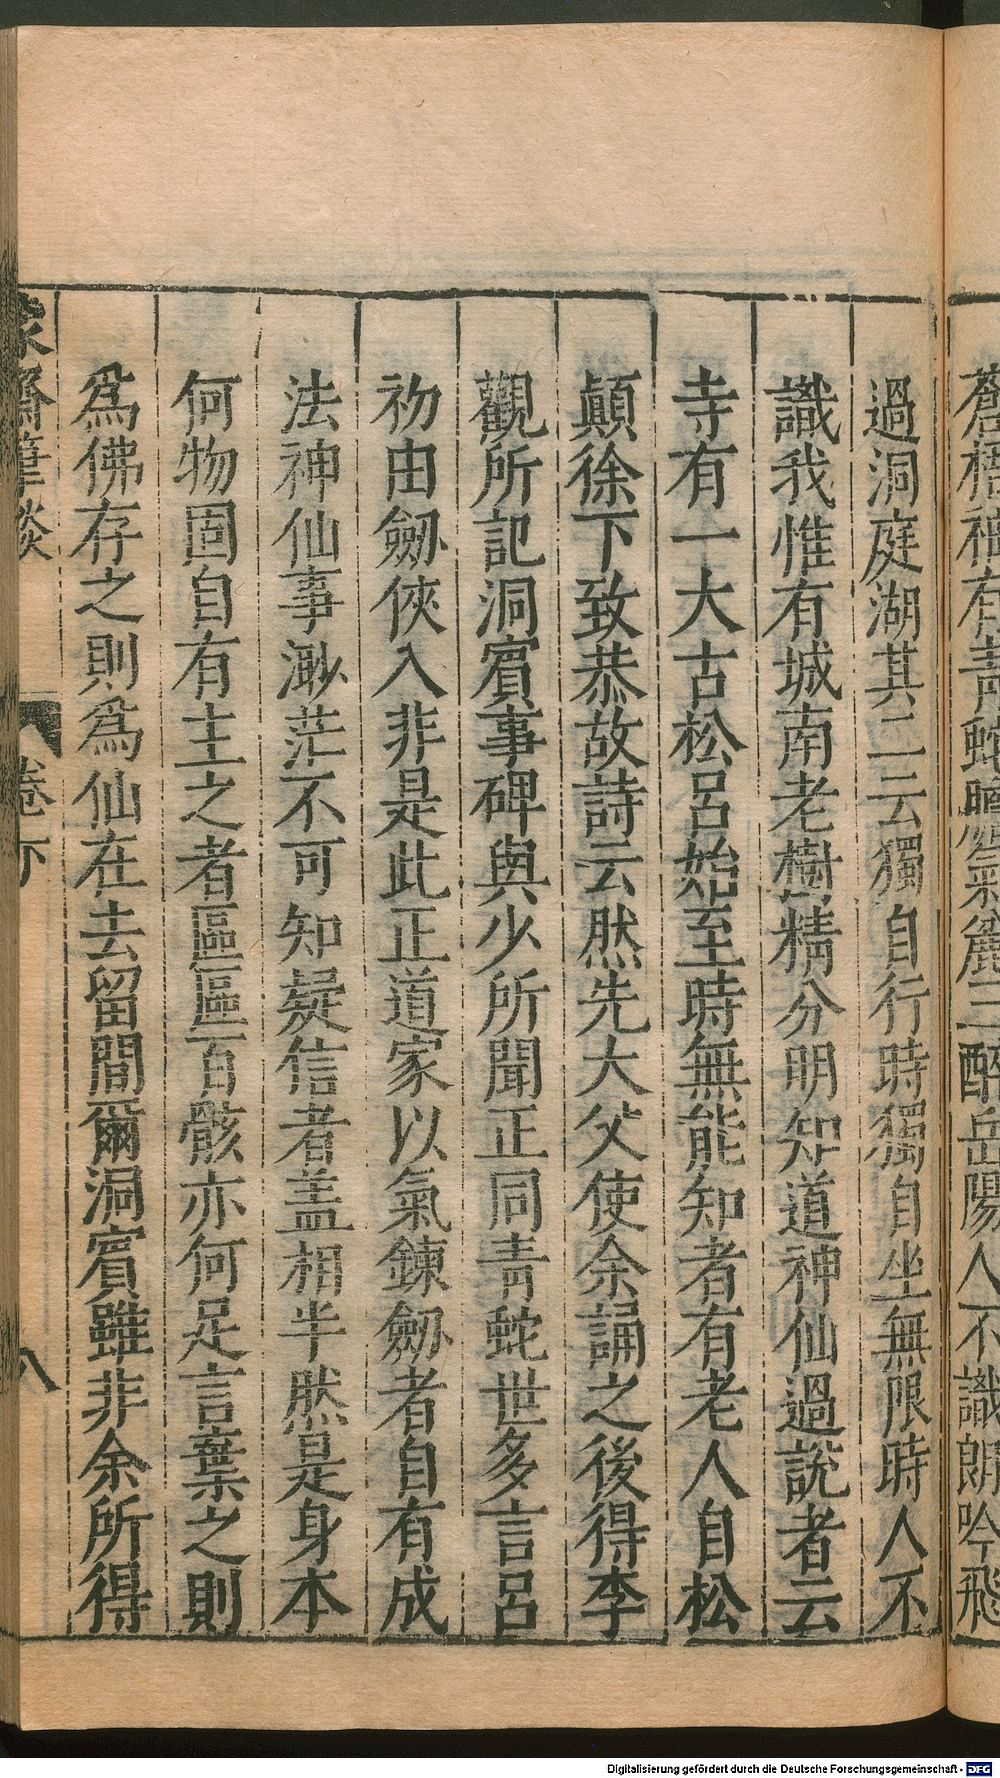 蒼梧袖有青蛇膽氣麄三醉岳陽人不識朗吟飛
過洞庭湖其二云獨自行時獨自坐無限時人不
識我惟有城南老樹精分明知道神仙過說者云
寺有一大古松呂始至時無能知者有老人自松
顛徐下致恭故詩云然先大父使余誦之後得李
觀所記洞賓事碑與少所聞正同青蛇世多言呂
初由劒俠入非是此正道家以氣鍊劒者自有成
法神仙事渺茫不可知疑信者盖相半然是身本
何物固自有主之者區區百骸亦何足言棄之則
爲佛存之則爲仙在去留間爾洞賓雖非余所得
蒙齋筆談
卷下
八
Digitalisierung gefördert durch die Deutsche Forschungsgemeinschaft - DFG